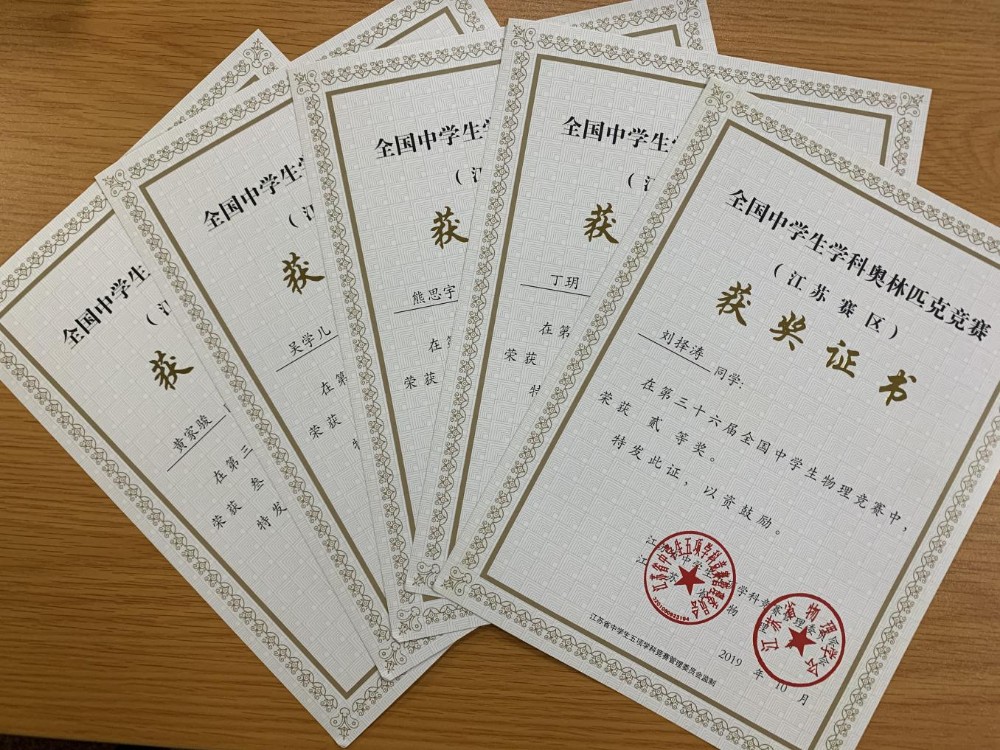 全国中学生
（江
获
黄家骏
在第三
荣获 叁
特发
全国中学生学
（江
获
吴学儿
在第
荣获
特
全国中学生学
（江
获
熊思宇
在第
荣获
全国中学生学
（江
获
丁玥
在第
荣获
特
全国中学生学科奥林匹克竞赛
（江苏赛区）
获奖证书
刘择涛 同学:
在第三十六届全国中学生物理竞赛中，
荣获 贰 等奖。
特发此证，以资鼓励。
江苏省中学生五项学科竞赛管理委员会
江苏省物理学会
2019 年 10 月
江苏省中学生五项学科竞赛管理委员会监制